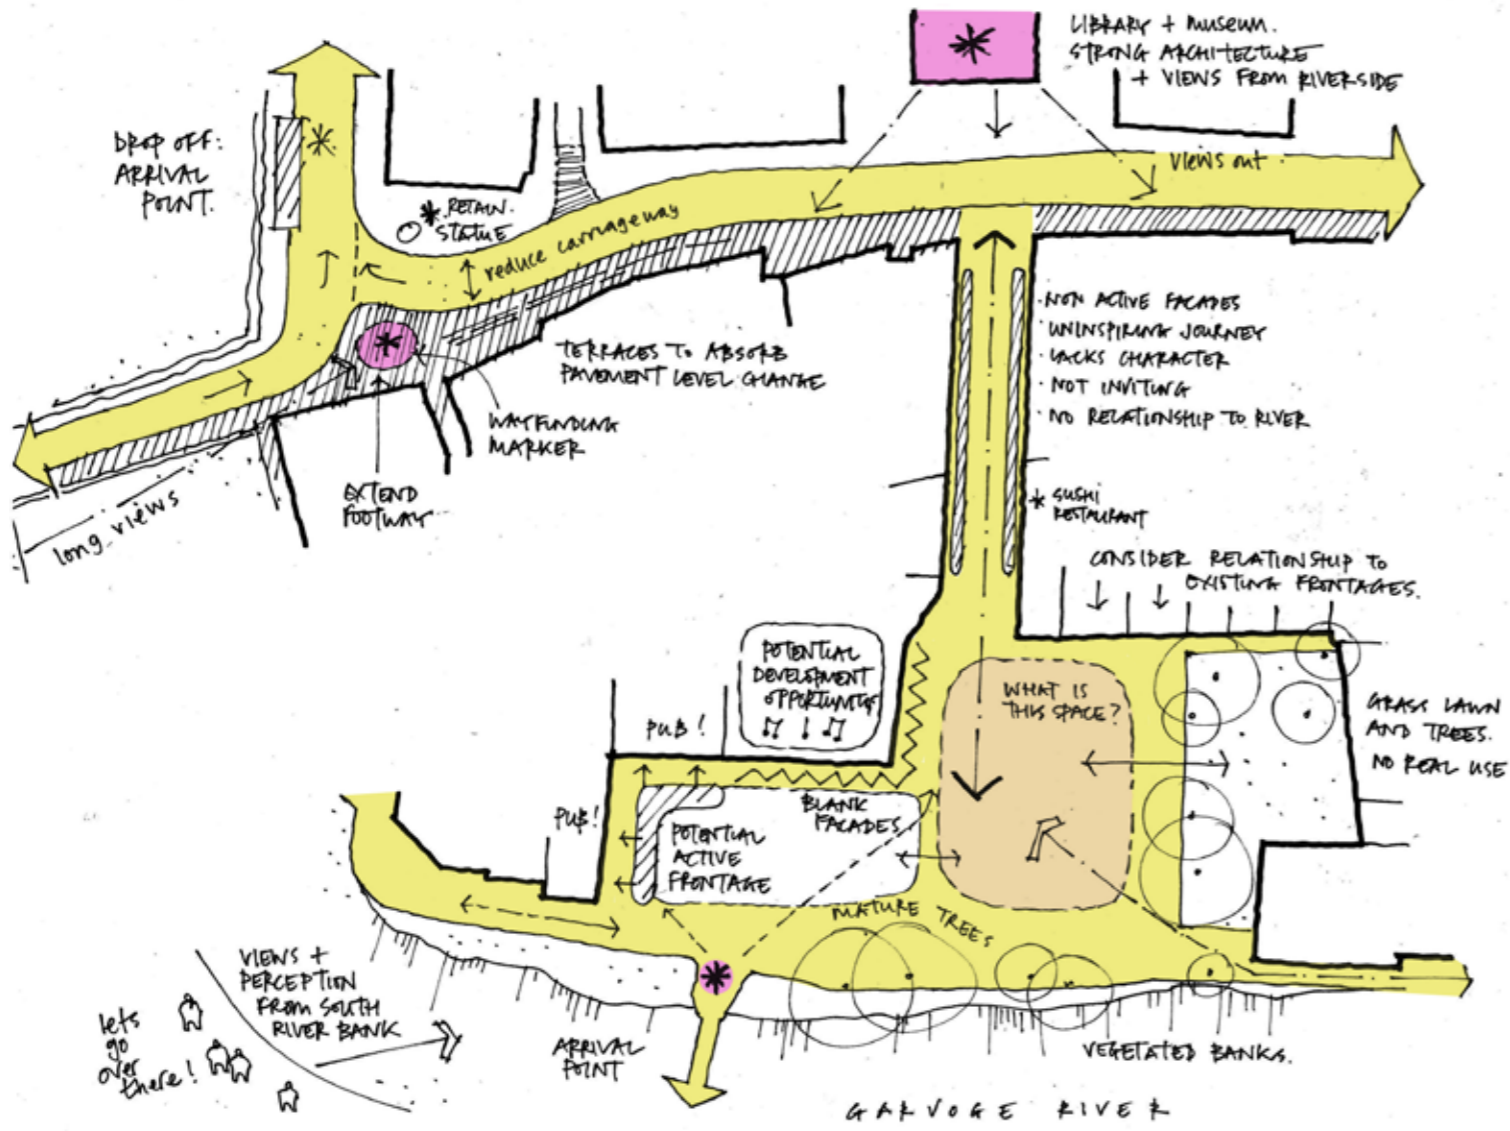 LIBRARY + MUSEUM.
STRONG ARCHITECTURE
+ VIEWS FROM RIVERSIDE
DROP OFF:
ARRIVAL
POINT.
RETAIN.
STATUE
reduce carriageway
views out
TERRACES TO ABSORB
PAVEMENT LEVEL CHANGE
WAYFINDING
MARKER
EXTEND
FOOTWAY
long views
· NON ACTIVE FACADES
· UNINSPIRING JOURNEY
· LACKS CHARACTER
· NOT INVITING
· NO RELATIONSHIP TO RIVER
SUSHI
RESTAURANT
CONSIDER RELATIONSHIP TO
EXISTING FRONTAGES.
POTENTIAL
DEVELOPMENT
OPPORTUNITY
WHAT IS
THIS SPACE?
GRASS LAWN
AND TREES.
NO REAL USE
PUB!
PUB!
BLANK
FACADES
POTENTIAL
ACTIVE
FRONTAGE
MATURE TREES
VIEWS +
PERCEPTION
FROM SOUTH
RIVER BANK
lets
go
over
there!
ARRIVAL
POINT
VEGETATED BANKS.
GARVOGE RIVER